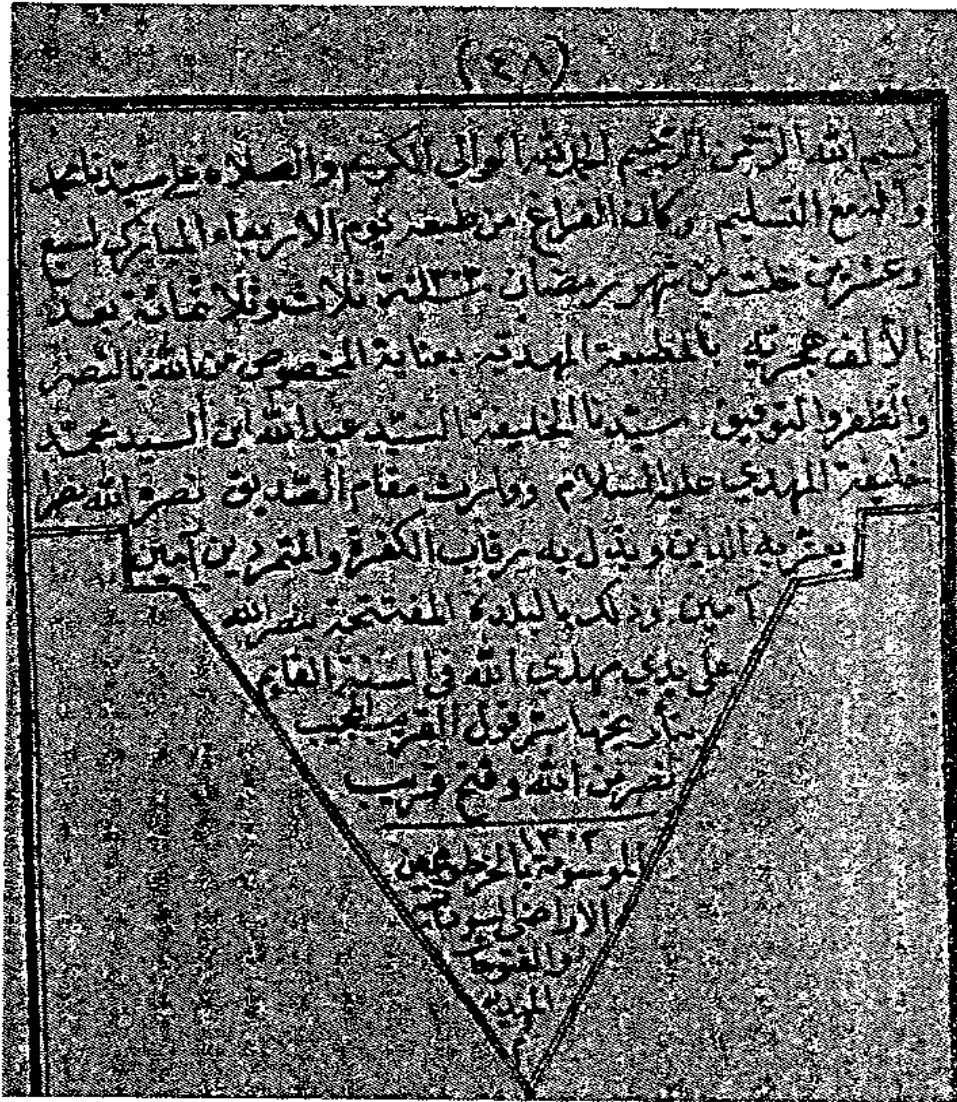 (٤٨)
بسم الله الرحمن الرحيم الحمد لله الوالي الكريم والصلاة على سيدنا محمد
وآله مع التسليم وكان الفراغ من طبعه يوم الاربعاء المبارك لسبع
وعشرين خلت من شهر رمضان سنة ١٣٠٣ ثلاث وثلاثمائة بعد
الألف هجرية بالمطبعة المهدية بعناية المخصوص من الله بالنصر
والظفر والتوفيق سيدنا الخليفة السيد عبد الله ابن السيد محمد
خليفة المهدي عليه السلام ووارث مقام الصديق نصره الله نصرا
يعز به الدين ويذل به رقاب الكفرة والمتمردين آمين
آمين وذلك بالبلدة المفتتحة بنصر الله
على يدي مهدي الله في السنة القايم
بتأريخها سر قول القريب المجيب
نصر من الله وفتح قريب
١٣٠٢
الموسومة بالخرطوم من
الاراضي السودانية
والفتوحات
المهدية
م